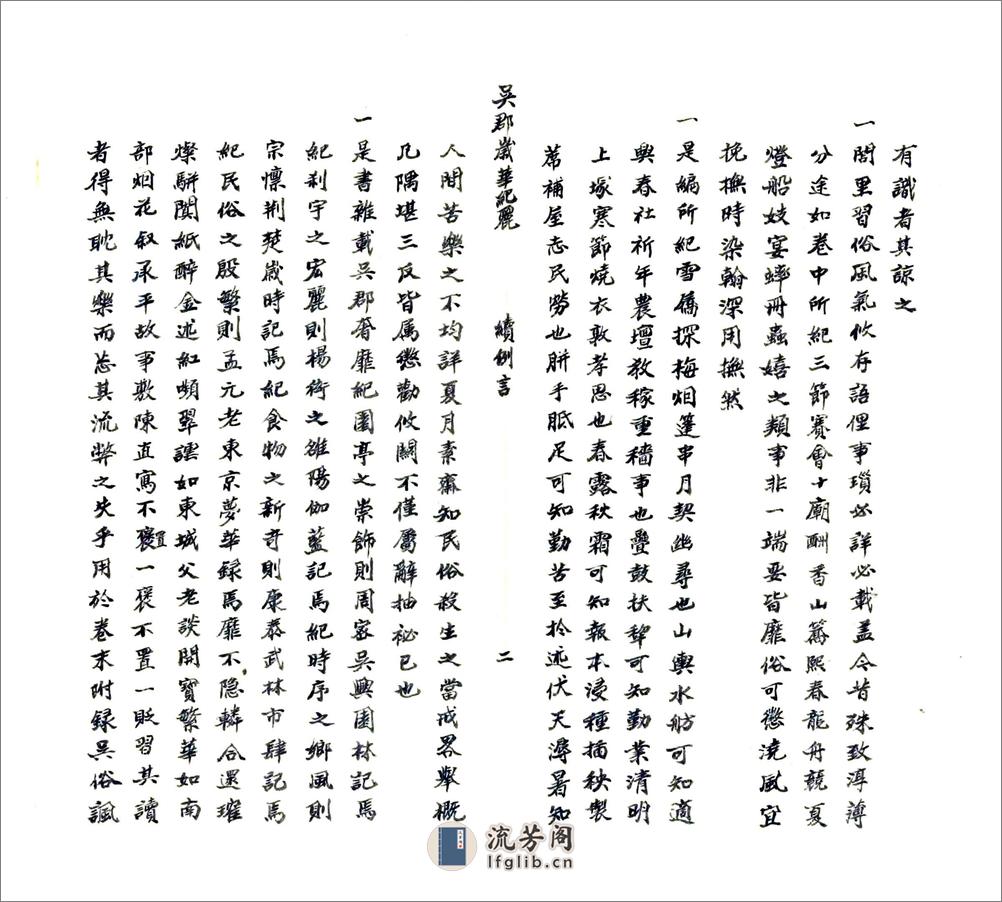 有識者其諒之
一閭里習俗風氣攸存語俚事瑣必詳必載盖今昔殊致淳薄
分途如卷中所紀三節賽會十廟酬香山篝熙春龍舟競夏
燈船妓宴蟀冊蟲嬉之類事非一端要皆靡俗可懲澆風宜
挽撫時染翰深用撫然
一是編所紀雪篷探梅烟篷串月契幽尋也山輿水舫可知適
興春社祈年農壇教稼重穡事也疊鼓扶犂可知勤業清明
上塚寒節燒衣敦孝思也春露秋霜可知報本浸種插秧製
蓆補屋志民勞也胼手胝足可知勤苦至扵述伏天溽暑知
吳郡歲華紀麗 續例言 二
人間苦樂之不均詳夏月素齋知民俗殺生之當戒畧舉概
凡隅堪三反皆属懲勸攸關不僅屬辭抽祕已也
一是書雜載吳郡奢靡紀園亭之崇飾則周密吳興園林記焉
紀刹宇之宏麗則楊衒之雒陽伽藍記焉紀時序之鄉風則
宗懔荆楚歲時記焉紀食物之新奇則康泰武林市肆記焉
紀民俗之殷繁則孟元老東京夢華録焉靡不隐轔合遝璀
燦駢闐紙醉金迷紅嚬翠讌如東城父老談開寶繁華如南
部烟花叙承平故事敷陳直寫不置一褒不置一貶習其讀
者得無眈其樂而忘其流弊之失乎用於卷末附録吳俗諷
流芳阁
lfglib.cn